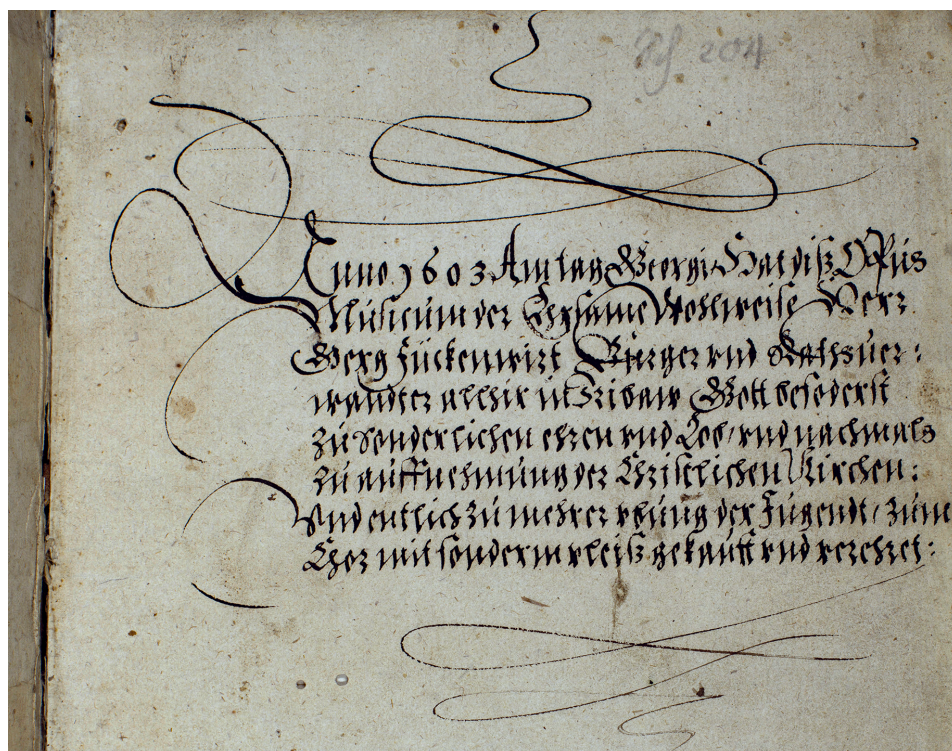 204
Anno 1603 Am tag Georgi Hat diß Opus
Musicum der Ehrsame Wohlweise Herr
Georg Fückenwirt Bürger vnd Rathsuer:
wandter alhir in Tribaw Gott besoderst
zu sonderlichen ehren vnd Lob, vnd nachmals
zu auffnehmung der Christlichen Kirchen:
Vnd entlich zu mehrer vbung der Jugendt, zum
Chor mit sonderm vleiß gekaufft vnd verehret: